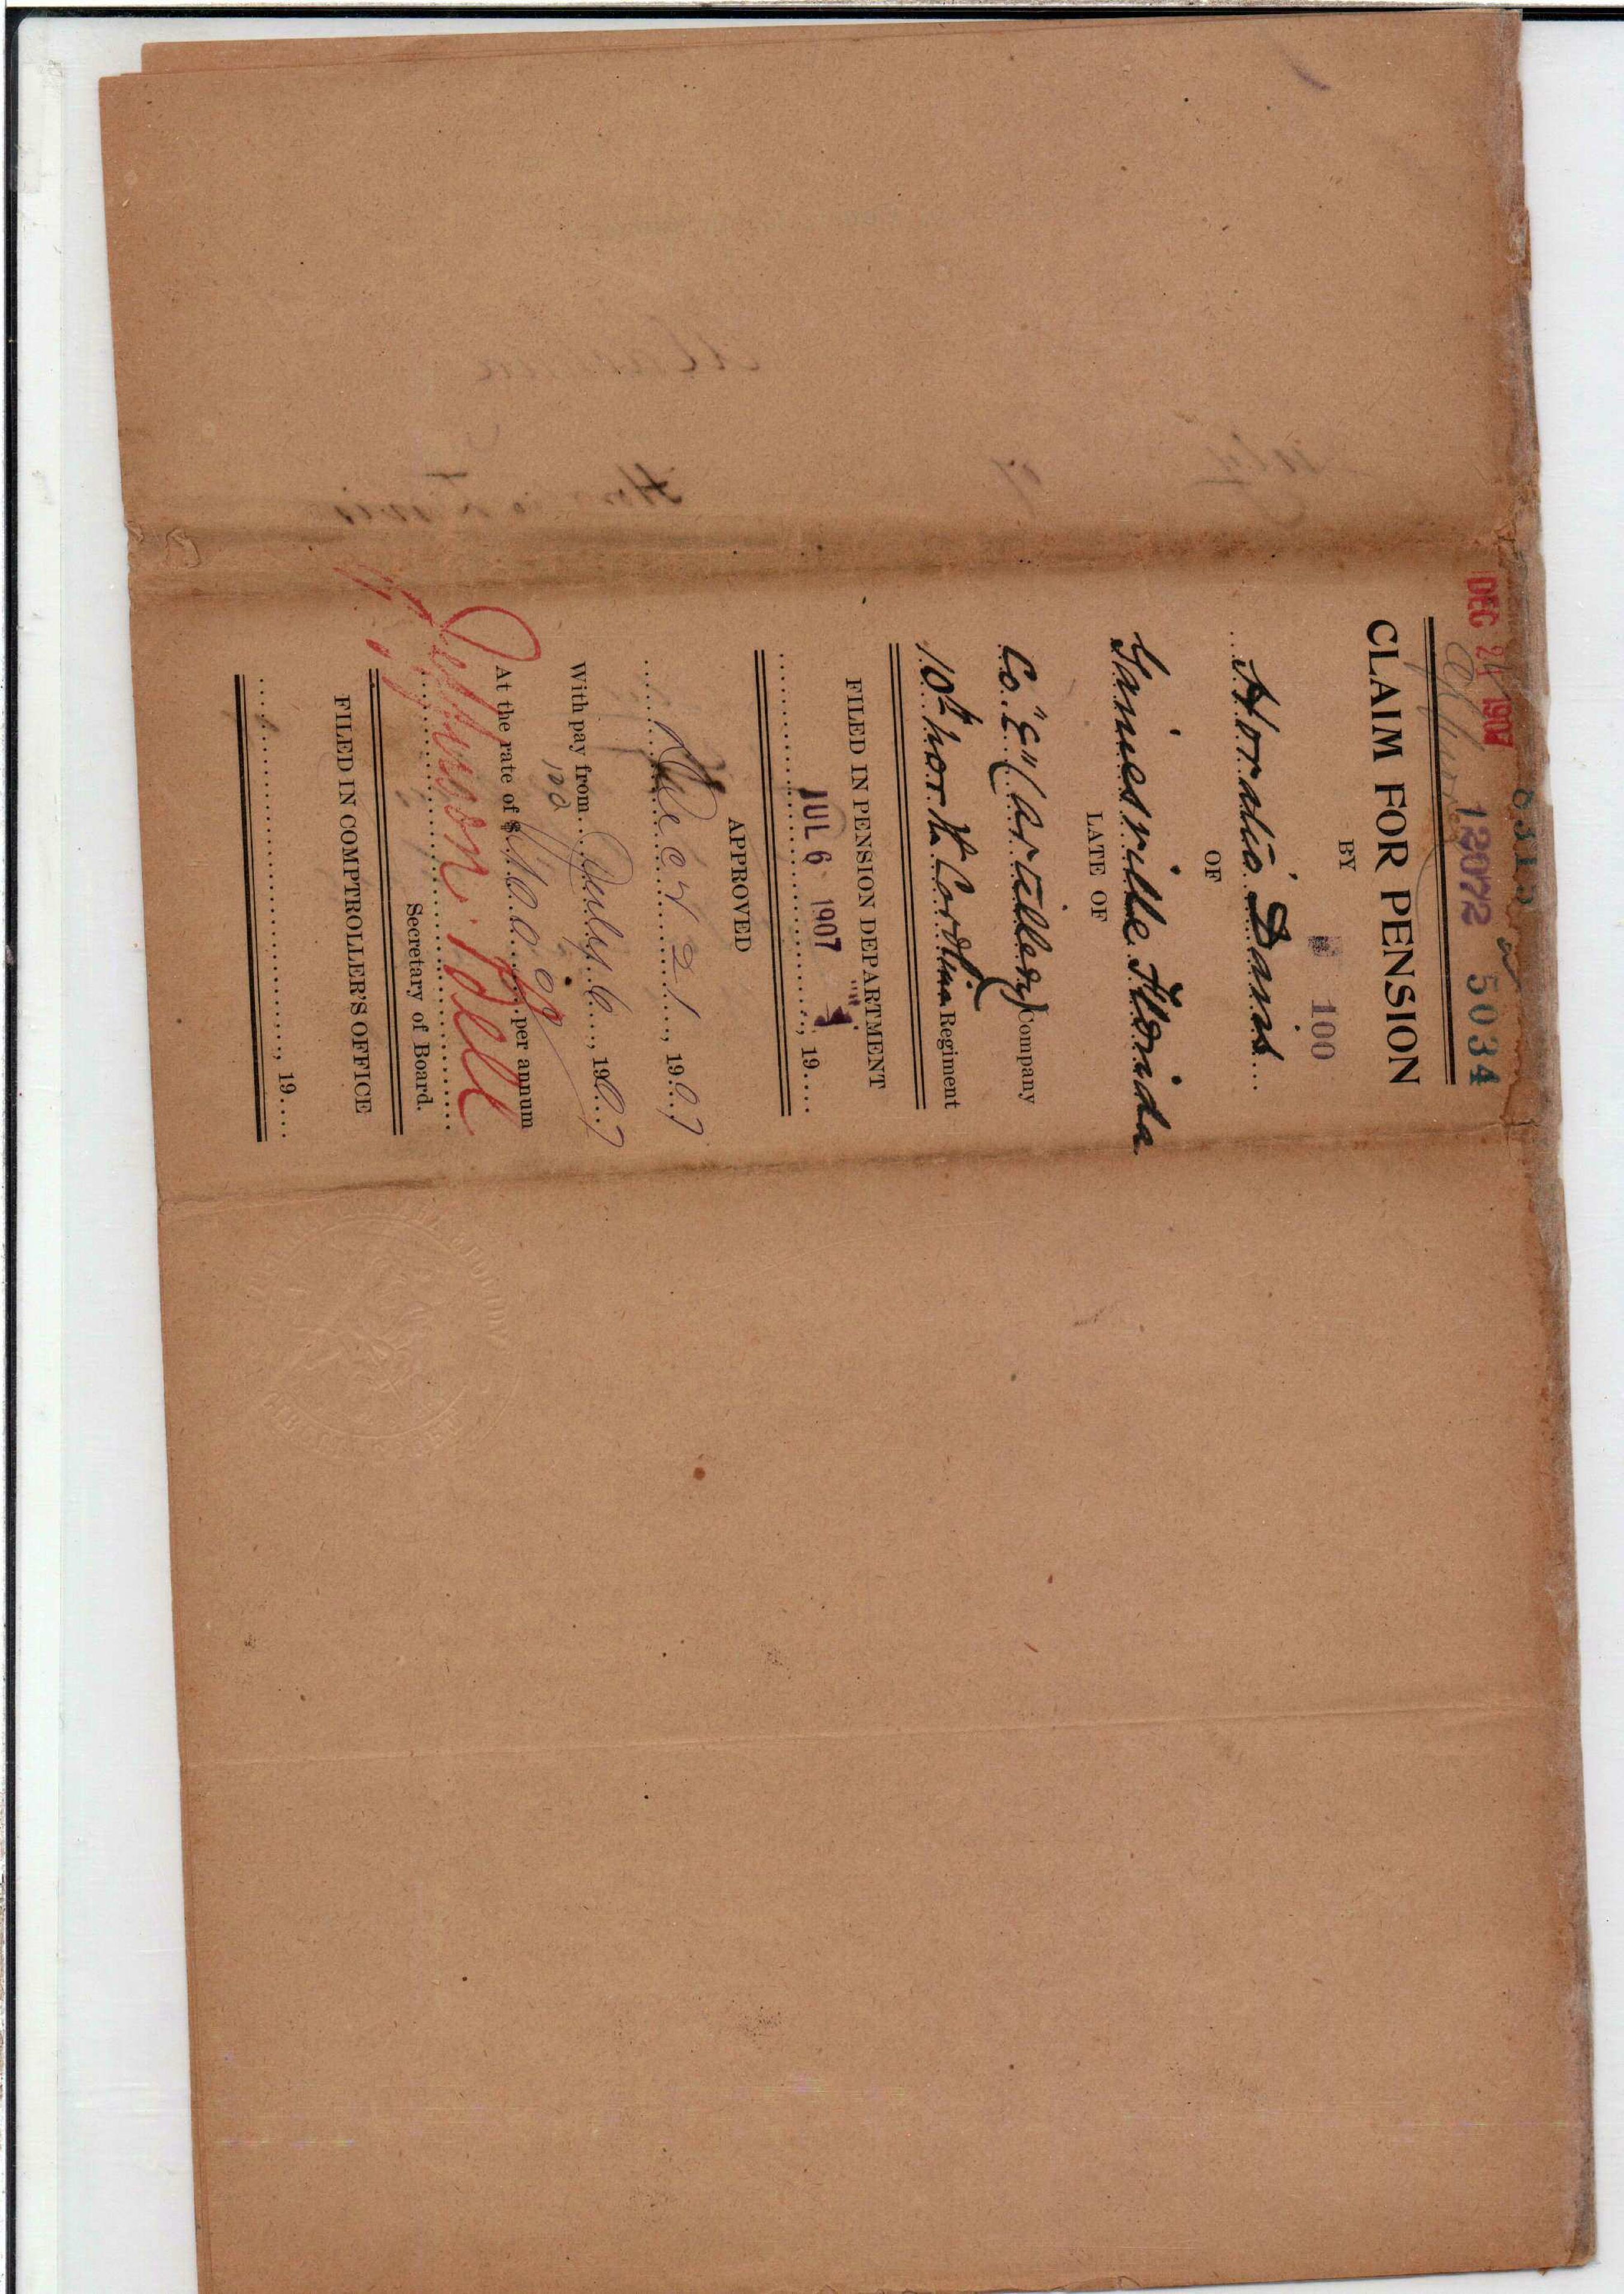 5034
DEC 21 1907 12072
CLAIM FOR PENSION
BY
100
Horatio Davis
OF
Gainesville Florida
LATE OF
Co. "E" (Artillery) Company
10th North Carolina Regiment
FILED IN PENSION DEPARTMENT
JUL 6 1907, 19
APPROVED
Dec 21, 1907
With pay from July 6, 1907
100
At the rate of $ 100.00 per annum
Jefferson B. Bell
Secretary of Board.
FILED IN COMPTROLLER'S OFFICE
, 19